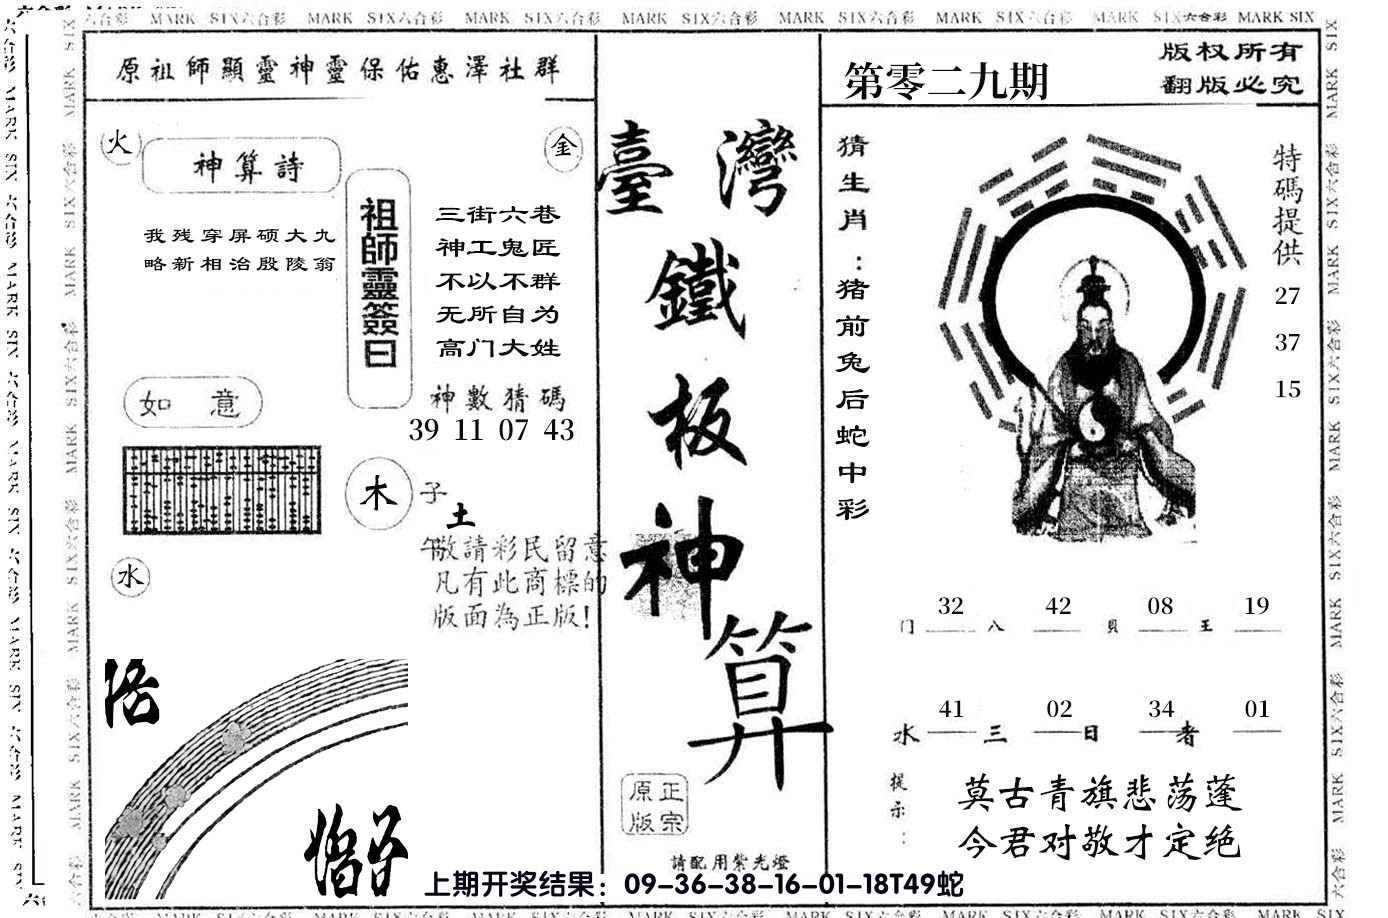 MARK SIX六合彩 MARK SIX六合彩 MARK SIX六合彩 MARK SIX六合彩 MARK SIX六合彩 MARK SIX六合彩 MARK SIX六合彩 MARK SIX
原祖師顯靈神靈保佑惠澤社群
火
金
神算詩
我残穿屏硕大九
略新相治殷陵翁
祖師靈簽曰
三街六巷
神工鬼匠
不以不群
无所自为
高门大姓
神數猜碼
39 11 07 43
如意
木
子
土
午
水
敬請彩民留意
凡有此商標的
版面為正版!
臺灣
鐵
板
神
算
正宗
原版
請配用紫光燈
第零二九期
版权所有
翻版必究
猜生肖:猪前兔后蛇中彩
特碼提供
27
37
15
32 42 08 19
门 八 贝 王
41 02 34 01
水 三 日 者
提示:
莫古青旗悲荡蓬
今君对敬才定绝
上期开奖结果：09-36-38-16-01-18T49蛇